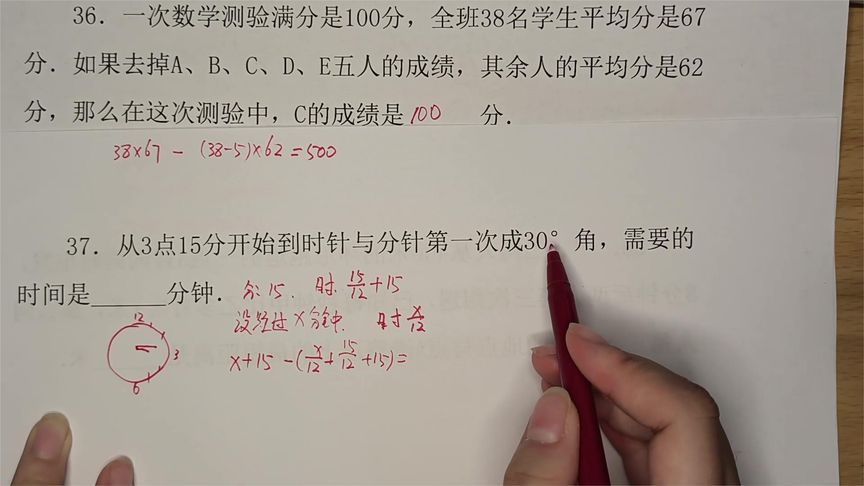 36. 一次数学测验满分是100分，全班38名学生平均分是67
分. 如果去掉A、B、C、D、E五人的成绩，其余人的平均分是62
分，那么在这次测验中，C的成绩是 100 分.
38×67 - (38-5)×62 = 500
37. 从3点15分开始到时针与分针第一次成30° 角，需要的
时间是______分钟.
分: 15. 时: 15/12 + 15
设经过 x 分钟. 时 x/12
12
3
6
x+15 - (x/12 + 15/12 + 15) =